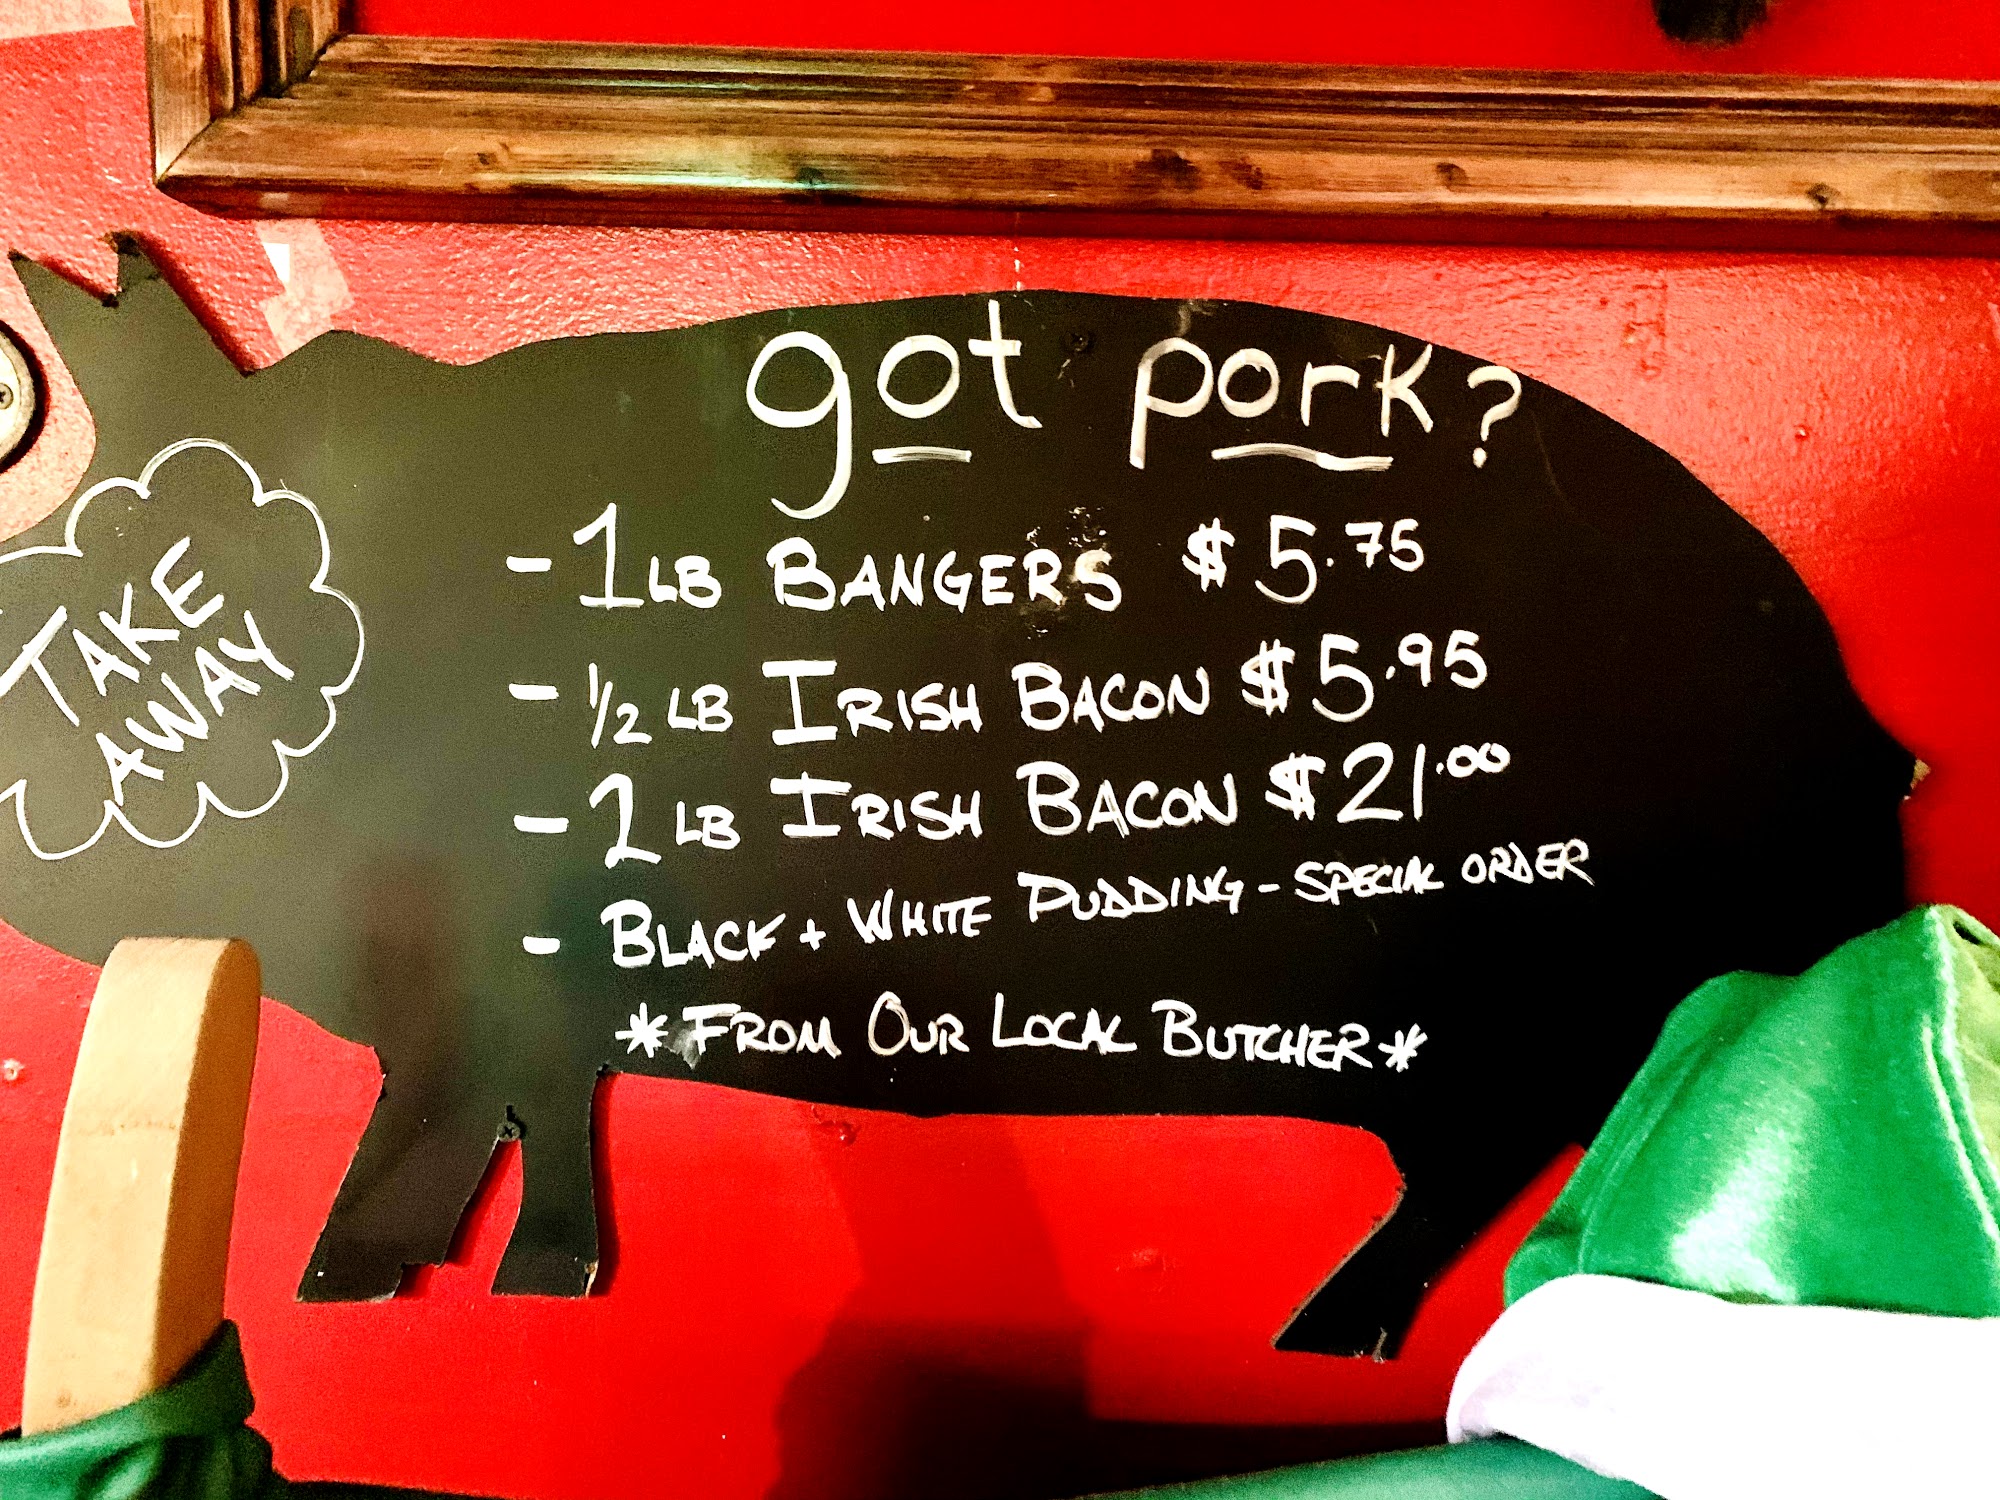 got pork?
- 1 LB BANGERS $5.75
- 1/2 LB IRISH BACON $5.95
- 2 LB IRISH BACON $21.00
- BLACK + WHITE PUDDING - SPECIAL ORDER
* FROM OUR LOCAL BUTCHER *
TAKE
AWAY